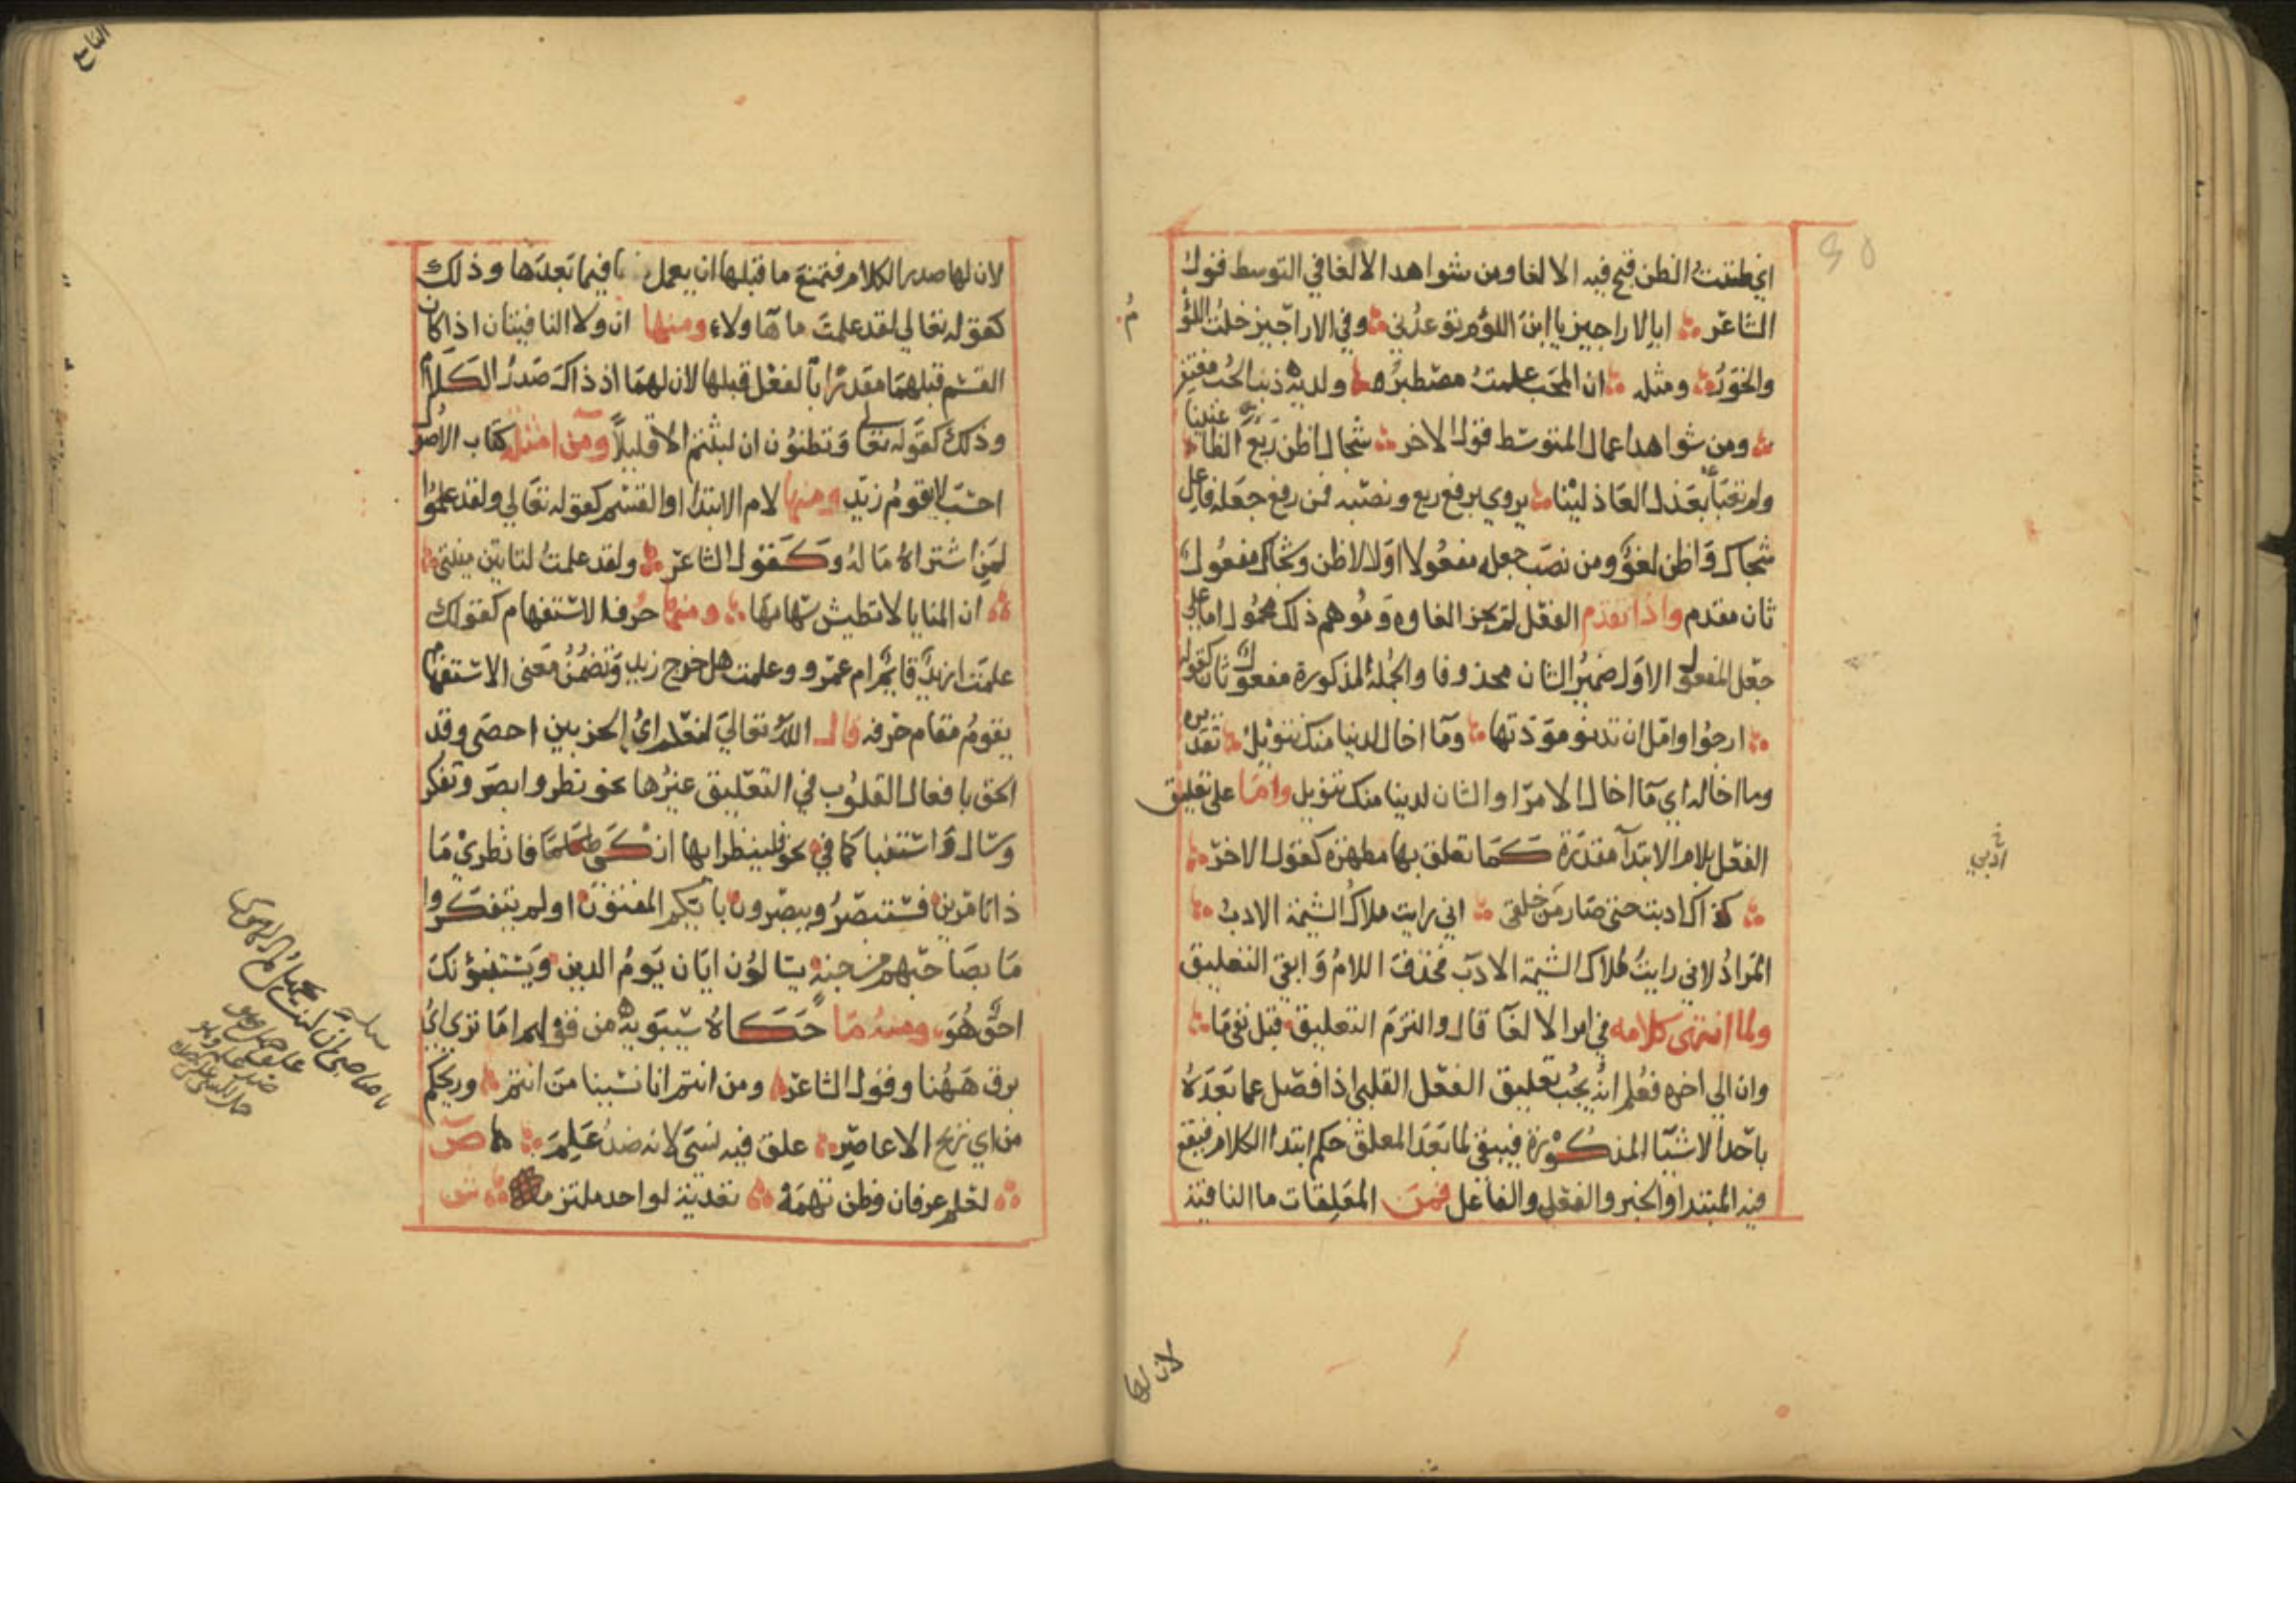 اي ظننت الظن قبح فيه الالغا ومن شواهد الالغا في التوسط قول
الشاعر ابالاراجيز يا ابن اللؤم توعدني وفي الاراجيز خلت اللؤ
م
والخور ومثله ان المحب علمت مصطبر ولديه ذنب الحب مغتفر
ومن شواهد اعمال المتوسط قول الاخر شجاك اظن ربع الظاعنينا
ولم تعبأ بعذل العاذلينا يروي برفع ربع ونصبه فمن رفع جعله فاعل
شجاك واظن لغو ومن نصب جعله مفعولا اولا لاظن وشجاك مفعول
ثان مقدم واذا تقدم الفعل لم يجز الغاوه وموهم ذلك محمول اما على
جعل المفعول الاول ضمير الشان محذوفا والجملة المذكورة مفعول ثان كقوله
ارجوا وامل ان تدنو مودتها وما اخال لدينا منك تنويل تقديره
وما اخاله اي ما اخال الامر او الشان لدينا منك تنويل واما على تعليق
الفعل بلام الابتدا مقدرة كما تعلق بها مظهرة كقول الاخر
كذاك ادبت حتى صار من خلقى اني رايت ملاك الشيمة الادب
المراد لاني رايت لملاك الشيمة الادب فحذفت اللام وابقى التعليق
ولما انتهى كلامه في امر الالغا قال والتزم التعليق قبل نفي ما
وان الي اخره فعلم انه يجب تعليق الفعل القلبي اذا فصل عما بعده
باحد الاشيا المذكورة فيبقى لما بعد المعلق حكم ابتدا الكلام فيقع
فيه المبتدا والخبر والفعل والفاعل فمن المعلقات ما النافية
لان لها
لان لها صدر الكلام فتمنع ما قبلها ان يعمل فيما بعدها وذلك
كقوله تعالي لقد علمت ما هاولاء ومنها ان ولا النافيتان اذا كان
القسم قبلهما مقدرا بالفعل قبلها لان لهما اذ ذاك صدر الكلام
وذلك كقوله تعالى وتظنون ان لبثتم الا قليلا ومن امثلة كتاب الاصو
احسب لا يقوم زيد ومنها لام الابتدا او القسم كقوله تعالي ولقد علموا
لمن اشتراه ماله وكقول الشاعر ولقد علمت لتاتين منيتي
ان المنايا لا تطيش سهامها ومنها حرف الاستفهام كقولك
علمت ازيد قايم ام عمرو وعلمت هل خرج زيد وتضمن معنى الاستفهام
يقوم مقام حرفه قال الله تعالي لنعلم اي الحزبين احصى وقد
الحق بافعال القلوب في التعليق غيرها نحو نظر وابصر وتفكر
وسال واستنبا كما في نحو فلينظر ايها ازكى طعاما فانظري ما
ذا تامرين فستبصر ويبصرون بايكم المفتون اولم يتفكروا
ما بصاحبهم من جنة يسالون ايان يوم الدين ويستنبؤنك
احق هو ومنه ما حكاه سيبويه من قولهم اما ترى اي
برق ههنا وقول الشاعر ومن انتم انا نسينا من انتم وريحكم
من اي ريح الاعاصر علق فيه نسى لانه ضد علم ص
لعلم عرفان وظن تهمة تعدية لواحد ملتزمة ش